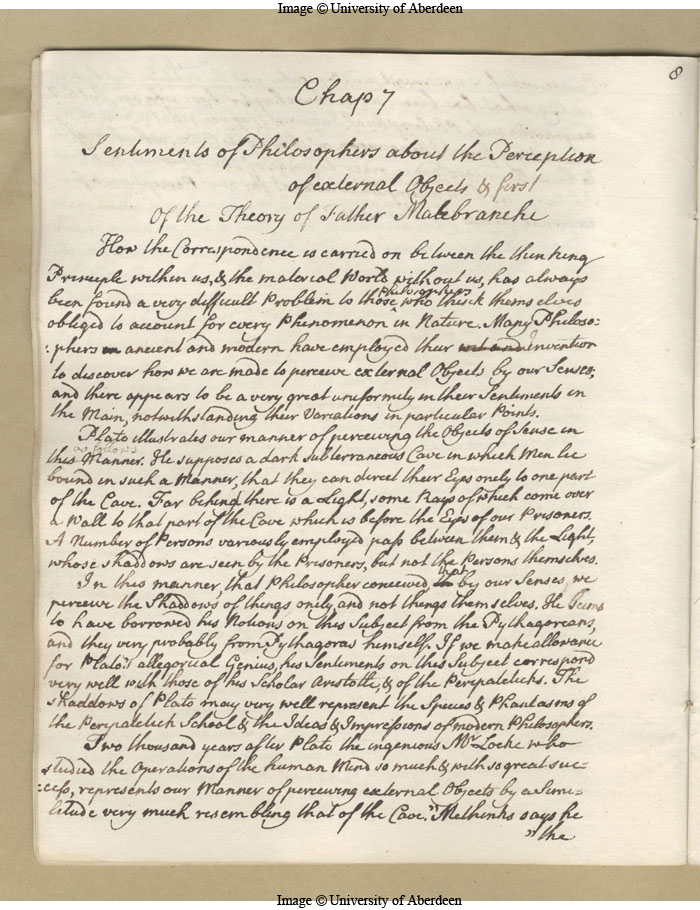 Image © University of Aberdeen
8
Chap 7
Sentiments of Philosophers about the Perception
of external Objects & first
Of the Theory of Father Malebranche
How the Correspondence is carried on between the thinking
Principle within us, & the material World without us, has always
Philosophers
been found a very difficult Problem to those who think themselves
obliged to account for every Phenomenon in Nature. Many Philoso-
:phers ancient and modern have employed their invention
to discover how we are made to perceive external Objects by our Senses,
and there appears to be a very great uniformity in their Sentiments in
the Main, notwithstanding their Variations in particular Points.
Plato illustrates our manner of perceiving the Objects of Sense in
as follows
this Manner. He supposes a dark subterraneous Cave in which Men lie
bound in such a Manner, that they can direct their Eyes only to one part
of the Cave. Far behind there is a Light, some Rays of which come over
a Wall to that part of the Cave which is before the Eyes of our Prisoners.
A Number of Persons variously employed pass between them & the Light,
whose shaddows are seen by the Prisoners, but not the Persons themselves.
In this manner, that Philosopher conceived that by our Senses, we
perceive the Shaddows of things only, and not things themselves. He seems
to have borrowed his Notions on this Subject from the Pythagoreans,
and they very probably from Pythagoras himself. If we make allowance
for Plato's allegorical Genius, his Sentiments on this Subject correspond
very well with those of his Scholar Aristotle, & of the Peripateticks. The
shaddows of Plato may very well represent the Species & Phantasms of
the Peripatetick School & the Ideas & Impressions of modern Philosophers.
Two thousand years after Plato the ingenious Mr Locke who
studied the Operations of the human Mind so much & with so great suc-
:cess, represents our Manner of perceiving external Objects by a Simi-
litude very much resembling that of the Cave. "Methinks says he
"the
Image © University of Aberdeen